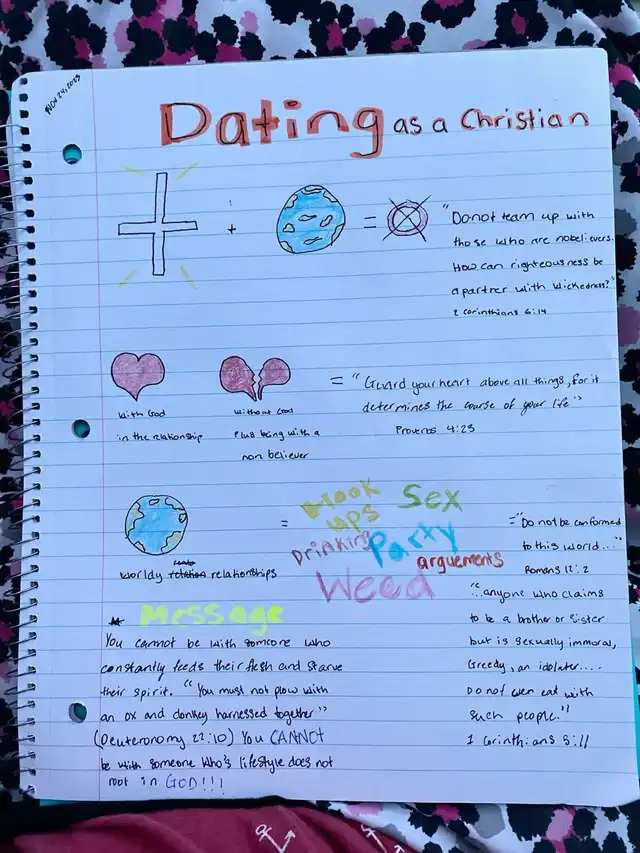 NOV 24, 2023
Dating as a Christian
+
=
"Do not team up with
those who are nobelievers.
How can righteousness be
a partner with wickedness?"
2 Corinthians 6:14
With God
in the relationship
without God
Plus being with a
non believer
= "Guard your heart above all things, for it
determines the course of your life"
Proverbs 4:23
worldy relationships
=
Hook
ups
Sex
Drinking
Party
arguements
Weed
="Do not be conformed
to this world..."
Romans 12:2
"...anyone who claims
to be a brother or Sister
but is sexually immoral,
Greedy, an idolater....
Do not even eat with
such people."
1 Corinthians 5:11
Message
You cannot be with someone who
constantly feeds their flesh and starve
their spirit. "You must not plow with
an ox and donkey harnessed together"
(Deuteronomy 22:10) You CANNOT
be with someone who's lifestyle does not
root in GOD!!!